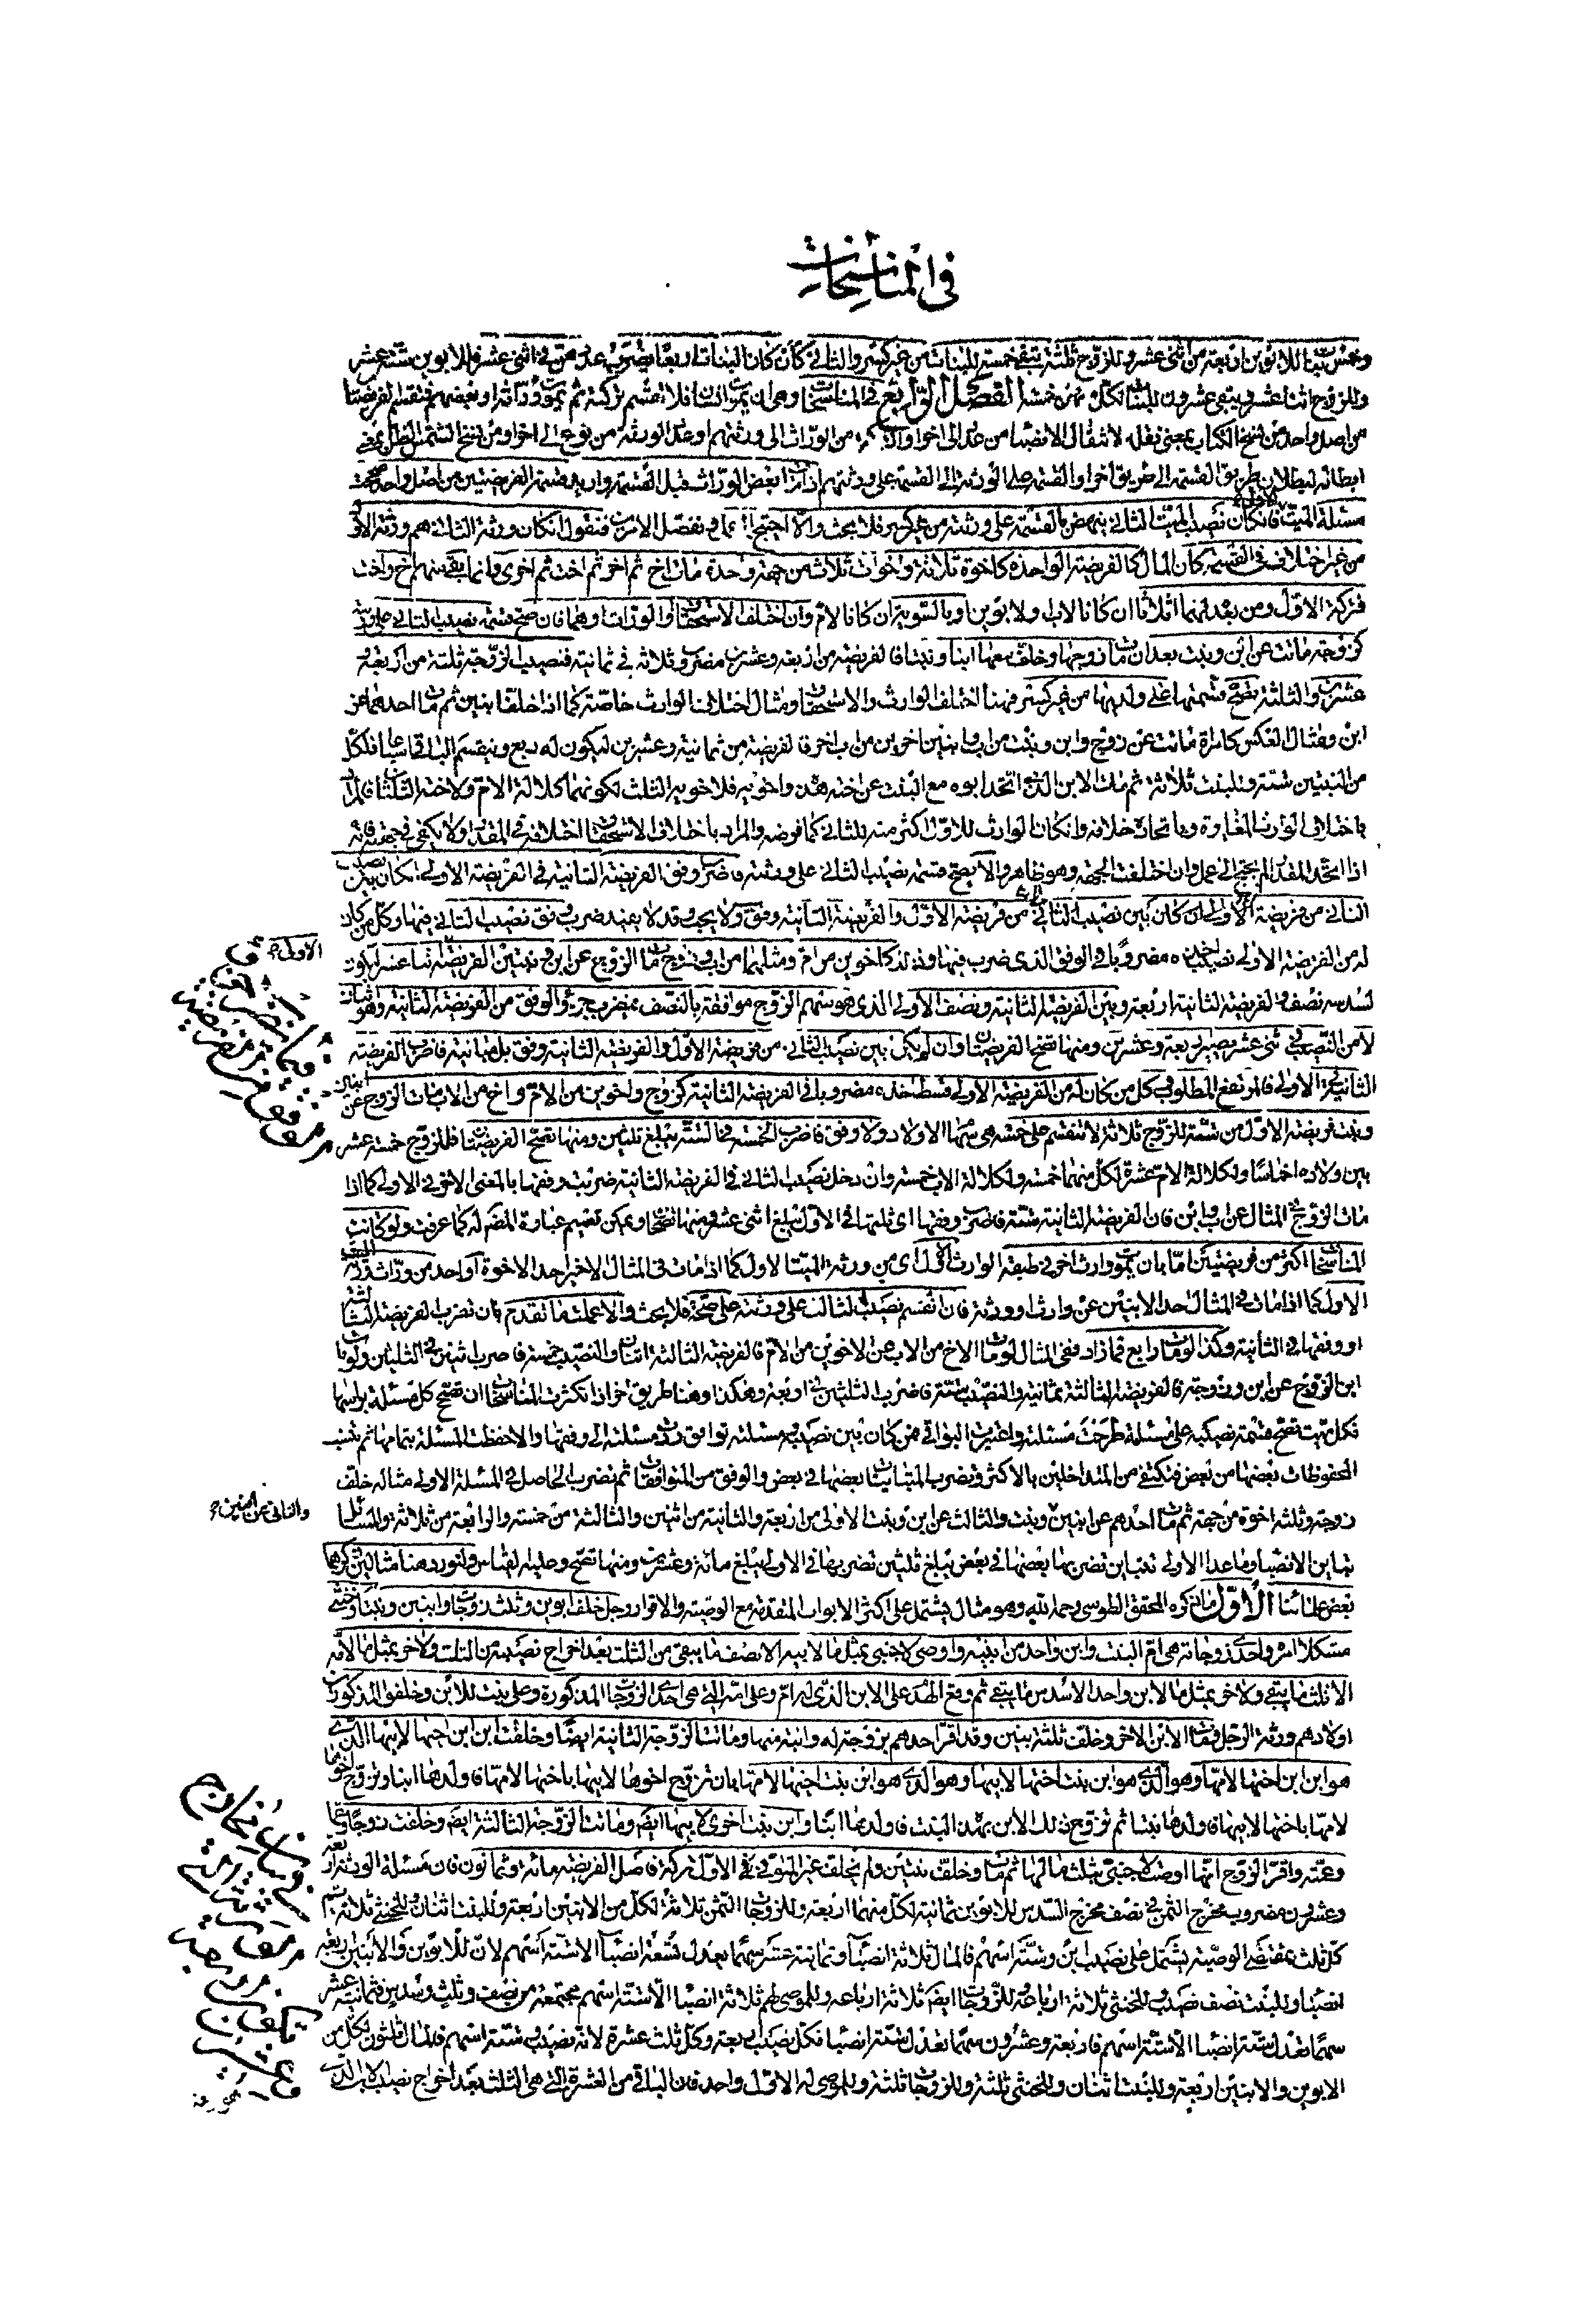 في المناسخات
وخمس بنات للابوين اربعة من اثنى عشر وللزوج ثلثة تبقى خمسة للبنات من غير كسر والثاني كأن كان البنات اربعا يضرب عددهن في اثنى عشر فللابوين ستة عشر
وللزوج اثنا عشر ويبقى عشرون للبنات لكل منهن خمسة الفصل الرابع في المناسخات وهي ان يموت انسان فلا تقسم تركته ثم يموت وراثه او بعضهم فتقسم الفريضتان
من اصل واحد من نسخ الكتاب بمعنى نقله لانتقال الانصباء من عدد الى اخر او من الوراث الى ورثتهم او عدد الورثة من نوع الى اخر او من نسخ الشمس الظل بمعنى
ابطاله لبطلان طريق القسمة الى طريق اخر او القسمة على الورثة الى القسمة على ورثتهم اذا مات بعض الوراث قبل القسمة واريد قسمة الفريضتين من اصل واحد صححت
مسئلة الميت الاول فان كان نصيب الميت الثاني ينهض بالقسمة على ورثته من غير كسر فلا بحث والا احتيج الى عمل ونفصل الامرين فنقول ان كان ورثة الثاني هم ورثة الاول
من غير اختلاف في القسمة كان المال كالفريضة الواحدة كاخوة ثلاثة واخوات ثلاث من جهة واحدة مات اخ ثم اخر ثم اخت ثم اخرى وانما بقي منهم اخ واخت
فتركة الاول ومن بعده لهما اثلاثا ان كانا لاب ولابوين وبالسوية ان كانا لام وان اختلف الاستحقاق او الوراث او هما فان صح قسمة نصيب الثاني على ورثته
كزوجة ماتت عن ابن وبنت بعد ان مات زوجها وخلف معها ابنا وبنتا فالفريضة من اربعة وعشرين مضروب ثلاثة في ثمانية فنصيب الزوجة ثلثة من اربعة و
عشرين والثلثة تصح قسمتها على ولديها من غير كسر فهنا اختلف الوارث والاستحقاق ومثال اختلاف الوارث خاصة كما اذا خلف ابنين ثم مات احدهما عن
ابن ومثال العكس كامراة ماتت عن زوج وابن وبنت من اب وابنين اخرين من اب اخر فالفريضة من ثمانية وعشرين ليكون له ربع وينقسم الباقي اسباعا فلكل
من البنين ستة وللبنت ثلاثة ثم مات الابن الذي اتحد ابوه مع البنت عن اخته هذه واخويه فلاخويه الثلث لكونهما كلالة الام ولاخته الثلثان فالمراد
باختلاف الوارث المغايرة وباتحاده خلافه وان كان الوارث للاول اكثر منه للثاني كما فرضه والمراد باختلاف الاستحقاق اختلافه في المقدار ولا يكفي في جهته فانه
اذا اتحد المقدار لم يحتج الى عمل وان اختلفت الجهة وهو ظاهر والا يصح قسمة نصيب الثاني على ورثته فاضرب وفق الفريضة الثانية في الفريضة الاولى ان كان بين نصيب
الثاني من فريضة الاول اي ان كان بين نصيب الثاني من فريضة الاول والفريضة الثانية وفق ولا يجب وقد لا يفيد ضرب وفق نصيب الثاني فيها وكل من كان
له من الفريضة الاولى نصيب اخذه مضروبا في الوفق الذي ضرب فيها وذلك كاخوين من ام ومثلهما من اب وزوج مات الزوج عن ابن وبنتين الفريضة اثنا عشر لكون
لسدسه نصف والفريضة الثانية اربعة وبين الفريضة الثانية ونصف الاولى الذي هو سهم الزوج موافقة بالنصف يضرب جزء الوفق من الفريضة الثانية وهو اثنان
لا من النصيب في اثنى عشر يصير اربعة وعشرين ومنها تصح الفريضتان وان لم يكن بين نصيب الثاني من فريضة الاول والفريضة الثانية وفق بل مباينة فاضرب الفريضة
الثانية في الاولى فالمرتفع المطلوب وكل من كان له من الفريضة الاولى قسط اخذه مضروبا في الفريضة الثانية كزوج واخوين من الام واخ من الاب مات الزوج عن ابنين
وبنت فريضة الاول من ستة للزوج ثلاثة لا تنقسم على خمسة هي سهام الاولاد ولا وفق فاضرب الخمسة في الستة تبلغ ثلثين ومنها تصح الفريضتان فللزوج خمسة عشر
بين ولاده اخماسا ولكلالة الام عشرة لكل منهما خمسة ولكلالة الاب خمسة وان دخل نصيب الثاني في الفريضة الثانية ضربت وفقها بالمعنى الاخر في الاولى كما اذا
مات الزوج في المثال عن اب وابن فان الفريضة الثانية ستة فاضرب وفقها اي ثلثها في الاول تبلغ اثنى عشر ومنها تصحان ويمكن تعميم عبارة المصنف له كما عرفت ولو كانت
المناسخات اكثر من فريضتين اما بان يموت وارث اخر في طبقة الوارث الاول اي من ورثة الميت الاول كما اذا مات في المثال الاخير احد الاخوة او احد من وراث وارث الميت
الاول كما اذا مات في المثال احد الابنين عن وارث او ورثة فان انقسم نصيب الثالث على ورثته على صحة فلا بحث والا عملت ما تقدم بان تضرب الفريضة الثالثة
او وفقها في الثانية وكذا لو مات رابع فما زاد ففي المثال لو مات الاخ من الاب عن الاخوين من الام فالفريضة الثالثة اثنان والنصيب خمسة فاضرب اثنين في الثلثين ولو مات
ابن الزوج عن ابن وزوجة فالفريضة الثالثة ثمانية والنصيب ستة فاضرب الثلثين في اربعة وهكذا وهنا طريق اخر اذا تكثرت المناسخات ان تصحح كل مسئلة براسها
فكل ميت تصح قسمة نصيبه على مسئلة طرحت مسئلته واعتبرت البواقي فمن كان بين نصيبه ومسئلته توافق رددت مسئلته الى وفقها والا حفظت المسئلة بتمامها ثم تنسب
المحفوظات بعضها من بعض فتكتفي من المتداخلين بالاكثر وتضرب المتباينات بعضها في بعض والوفق من المتوافقات ثم تضرب الحاصل في المسئلة الاولى مثاله خلف
زوجة وثلثة اخوة من جهة ثم مات احدهم عن ابنين وبنت والثالث عن ابن وبنت الاولى من اربعة والثانية من اثنين والثالثة من خمسة والرابعة من ثلاثة والمسائل
تباين الانصباء وما عدا الاولى تتباين تضربها بعضها في بعض تبلغ ثلثين تضربها في الاولى يبلغ مائة وعشرين ومنها تصح وعليه القياس ولنورد هنا مثالين ذكرهما
بعض علمائنا الاول ما ذكره المحقق الطوسي رحمه الله وهو مثال يشتمل على اكثر الابواب المتقدمة مع الوصية والاقرار رجل خلف ابوين وثلث زوجات وابنين وبنتا وخنثى
مشكلا امره واحدى زوجاته هي ام البنت وابن واحد من ابنيه واوصى لاجنبي بمثل ما لابيه الا نصف ما يبقى من الثلث بعد اخراج نصيبه من الثلث ولاخر بمثل ما لامه
الا ثلث ما يبقى ولاخر بمثل ما لابن واحد الا سدس ما يبقى ثم وقع الهدم على الابن الذي له ام وعلى امه التي هي احدى الزوجات المذكورة وعلى بنت للابن وخلفوا المذكورين
اولادهم ورثة الرجل فمات الابن الاخر وخلف ثلثة بنين وقد اقر احدهم بزوجة له وابنة منها وماتت الزوجة الثانية ايضا وخلفت ابن ابن اختها لابيها الذي
هو ابن ابن اختها لامها وهو الذي هو ابن بنت اختها لابيها وهو الذي هو ابن بنت اختها لامها بان تزوج اخوها لابيها باختها لامها فاولدها ابنا وتزوج اخوها
لامها باختها لابيها فاولدها بنتا ثم تزوج ذلك الابن بهذه البنت فاولدها ابنا وابن بنت اخرى لابيها ايضا وماتت الزوجة الثالثة ايضا وخلفت زوجا وعما
وعمة واقر الزوج انها اوصت لاجنبي بثلث مالها ثم مات وخلف بنتين ولم يخلف غير المتوفى الاول تركة فاصل الفريضة مائة وثمانون فان مسئلة الورثة اربعة
وعشرون مضروب مخرج الثمن في نصف مخرج السدس للابوين ثمانية لكل منهما اربعة وللزوجات الثمن ثلاثة لكل من الابنين اربعة وللبنت اثنان وللخنثى ثلاثة ثم
كل ثلث بمقتضى الوصية يشتمل على نصيب ابن وستة اسهم فالمال ثلاثة انصباء وثمانية عشر سهما يعدل تسعة انصباء الا ستة اسهم لان للابوين والابنين اربعة
انصباء وللبنت نصف نصيب وللخنثى ثلاثة ارباعه وللزوجات ايضا ثلاثة ارباعه وللموصى لهم ثلاثة انصباء الا ستة اسهم مجتمعة من نصف وثلث وسدس فثمانية عشر
سهما تعدل ستة انصباء الا ستة اسهم فاربعة وعشرون سهما تعدل ستة انصباء فكل نصيب اربعة وكل ثلث عشرة لانه نصيب وستة اسهم فالمال ثلثون لكل من
الابوين والابنين اربعة وللبنت اثنان وللخنثى ثلثة وللزوجات ثلثة وللموصى له الاول واحد فان الباقي من العشرة التي هي الثلث بعد اخراج نصيب الاب الذي
الاولى
والثاني عن ابنين